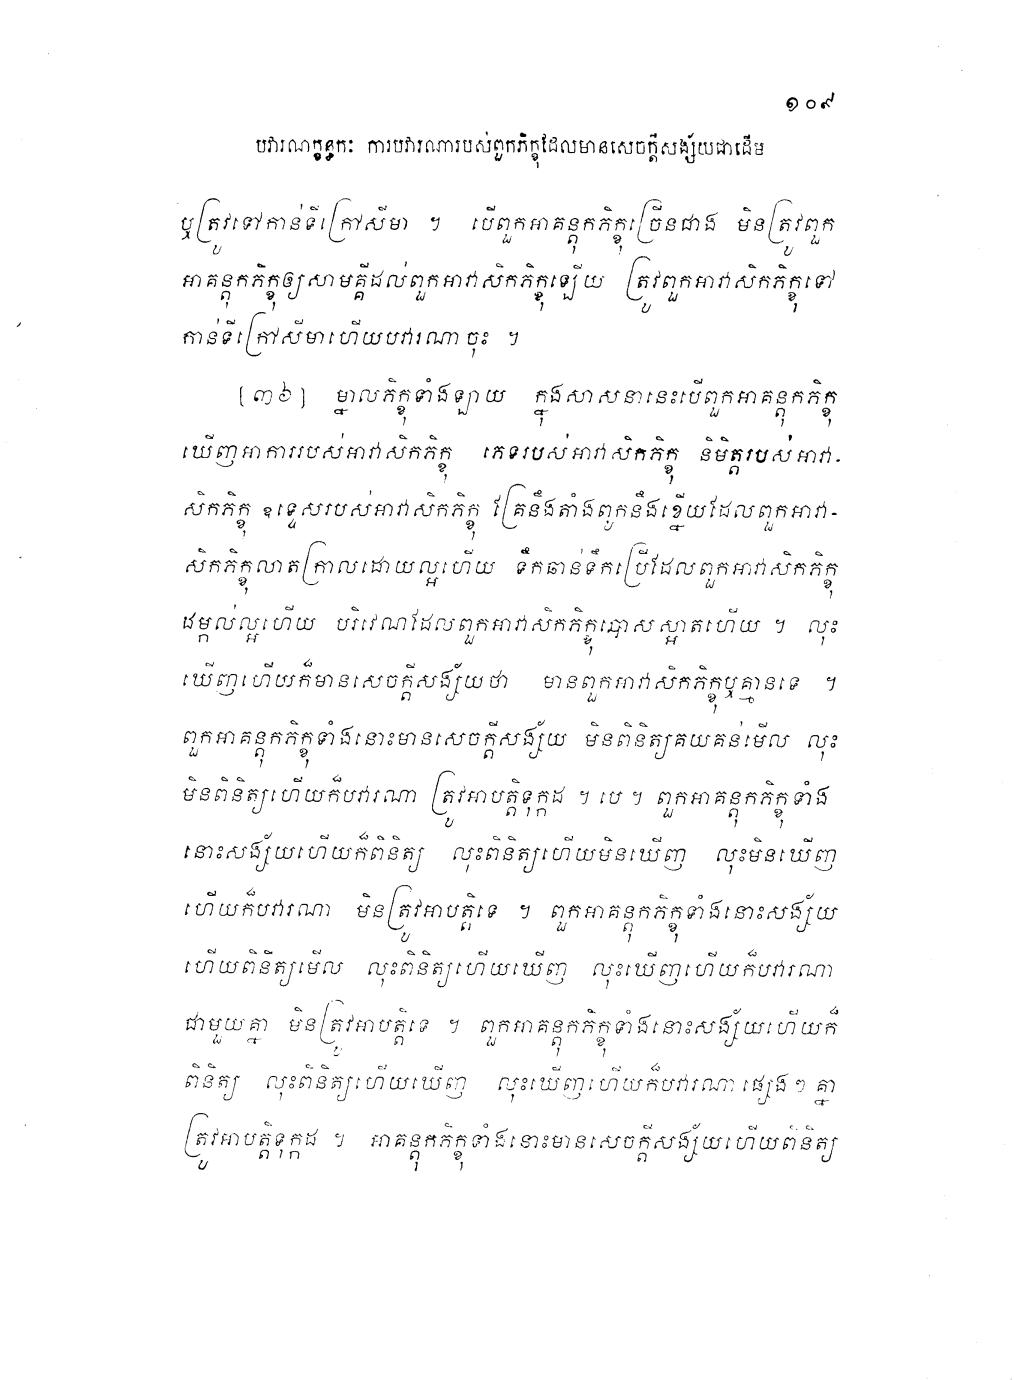 ១០៩
បវារណក្ខន្ធកៈ ការបវារណារបស់ពួកភិក្ខុដែលមានសេចក្តីសង្ស័យជាដើម
ឬត្រូវទៅកាន់ទីក្រៅសីមា ។ បើពួកអាគន្តុកភិក្ខុច្រើនជាង មិនត្រូវពួក
អាគន្តុកភិក្ខុឲ្យសាមគ្គីដល់ពួកអាវាសិកភិក្ខុឡើយ ត្រូវពួកអាវាសិកភិក្ខុទៅ
កាន់ទីក្រៅសីមាហើយបវារណាចុះ ។
[៣៦] ម្នាលភិក្ខុទាំងឡាយ ក្នុងសាសនានេះបើពួកអាគន្តុកភិក្ខុ
ឃើញអាការរបស់អាវាសិកភិក្ខុ ភេទរបស់អាវាសិកភិក្ខុ និមិត្តរបស់អាវា-
សិកភិក្ខុ ឧទ្ទេសរបស់អាវាសិកភិក្ខុ គ្រែនឹងតាំងពូកនឹងខ្នើយដែលពួកអាវា-
សិកភិក្ខុលាតក្រាលដោយល្អហើយ ទឹកឆាន់ទឹកប្រើដែលពួកអាវាសិកភិក្ខុ
ដម្កល់ល្អហើយ បរិវេណដែលពួកអាវាសិកភិក្ខុបោសស្អាតហើយ ។ លុះ
ឃើញហើយក៏មានសេចក្តីសង្ស័យថា មានពួកអាវាសិកភិក្ខុឬគ្មានទេ ។
ពួកអាគន្តុកភិក្ខុទាំងនោះមានសេចក្តីសង្ស័យ មិនពិនិត្យគយគន់មើល លុះ
មិនពិនិត្យហើយក៏បវារណា ត្រូវអាបត្តិទុក្កដ ។ បេ ។ ពួកអាគន្តុកភិក្ខុទាំង
នោះសង្ស័យហើយក៏ពិនិត្យ លុះពិនិត្យហើយមិនឃើញ លុះមិនឃើញ
ហើយក៏បវារណា មិនត្រូវអាបត្តិទេ ។ ពួកអាគន្តុកភិក្ខុទាំងនោះសង្ស័យ
ហើយពិនិត្យមើល លុះពិនិត្យហើយឃើញ លុះឃើញហើយក៏បវារណា
ជាមួយគ្នា មិនត្រូវអាបត្តិទេ ។ ពួកអាគន្តុកភិក្ខុទាំងនោះសង្ស័យហើយក៏
ពិនិត្យ លុះពិនិត្យហើយឃើញ លុះឃើញហើយក៏បវារណាផ្សេងៗ គ្នា
ត្រូវអាបត្តិទុក្កដ ។ អាគន្តុកភិក្ខុទាំងនោះមានសេចក្តីសង្ស័យហើយពិនិត្យ